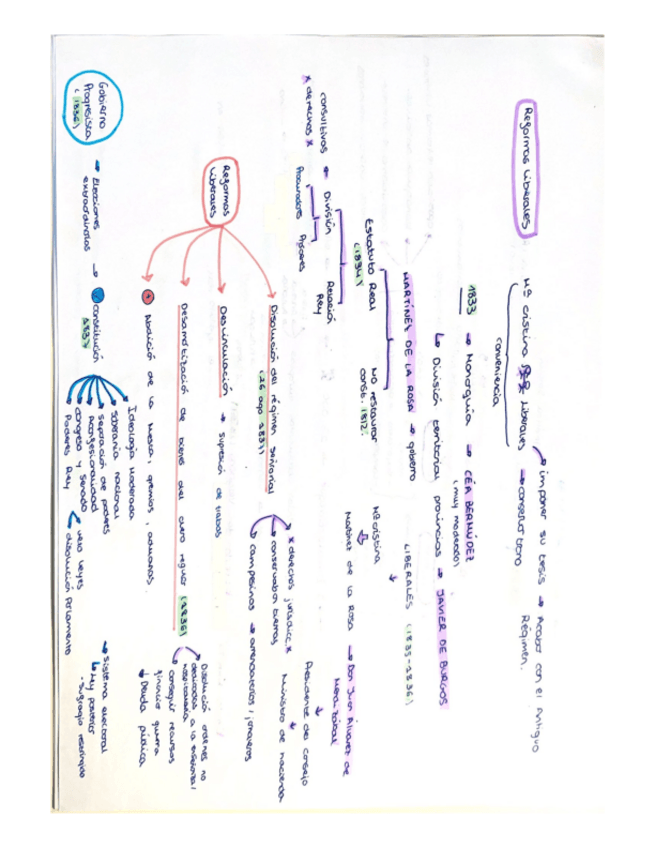 Reformas Liberales
Mª Cristina Liberales
conveniencia
imponer su tesis → Acabar con el Antiguo
Régimen.
→ conservar trono
1833 → Monarquía → CEA BERMÚDEZ
(muy moderado)
↳ División territorial provincias → JAVIER DE BURGOS
MARTÍNES DE LA ROSA → gobierno
LIBERALES (1835-1836)
Estatuto Real
(1834)
NO restaurar
const. 1812.
Mª Cristina
Martínez de la Rosa → Don Juan Álvarez de
Mendizábal
Presidente del consejo
Ministro de hacienda
División
Relación
Rey
consultivos
x derechos x
Procuradores
Próceres
Reformas
Liberales
Disolución del régimen señorial
(26 ago 1837)
x derechos jurisdicc. x
→ conservaban tierras
→ campesinos → arrendatarios, jornaleros
Desvinculación → supresión de trabas
Desamortización de bienes del clero regular (1836)
Disolución ordenes no
dedicadas a la enseñanza/
hospitalaria
conseguir recursos
financiar guerra
↓ Deuda pública
Abolición de la Mesta, gremios, aduanas
Gobierno
Progresista
(1836)
→ Elecciones
extraordinarias
→ Constitución
1837
Ideología Moderada
soberanía nacional
separación de poderes
confesionalidad
congreso y senado
Poderes Rey
veto leyes
disolución parlamento
→ Sistema electoral
↳ Ley posterior
- sufragio restringido